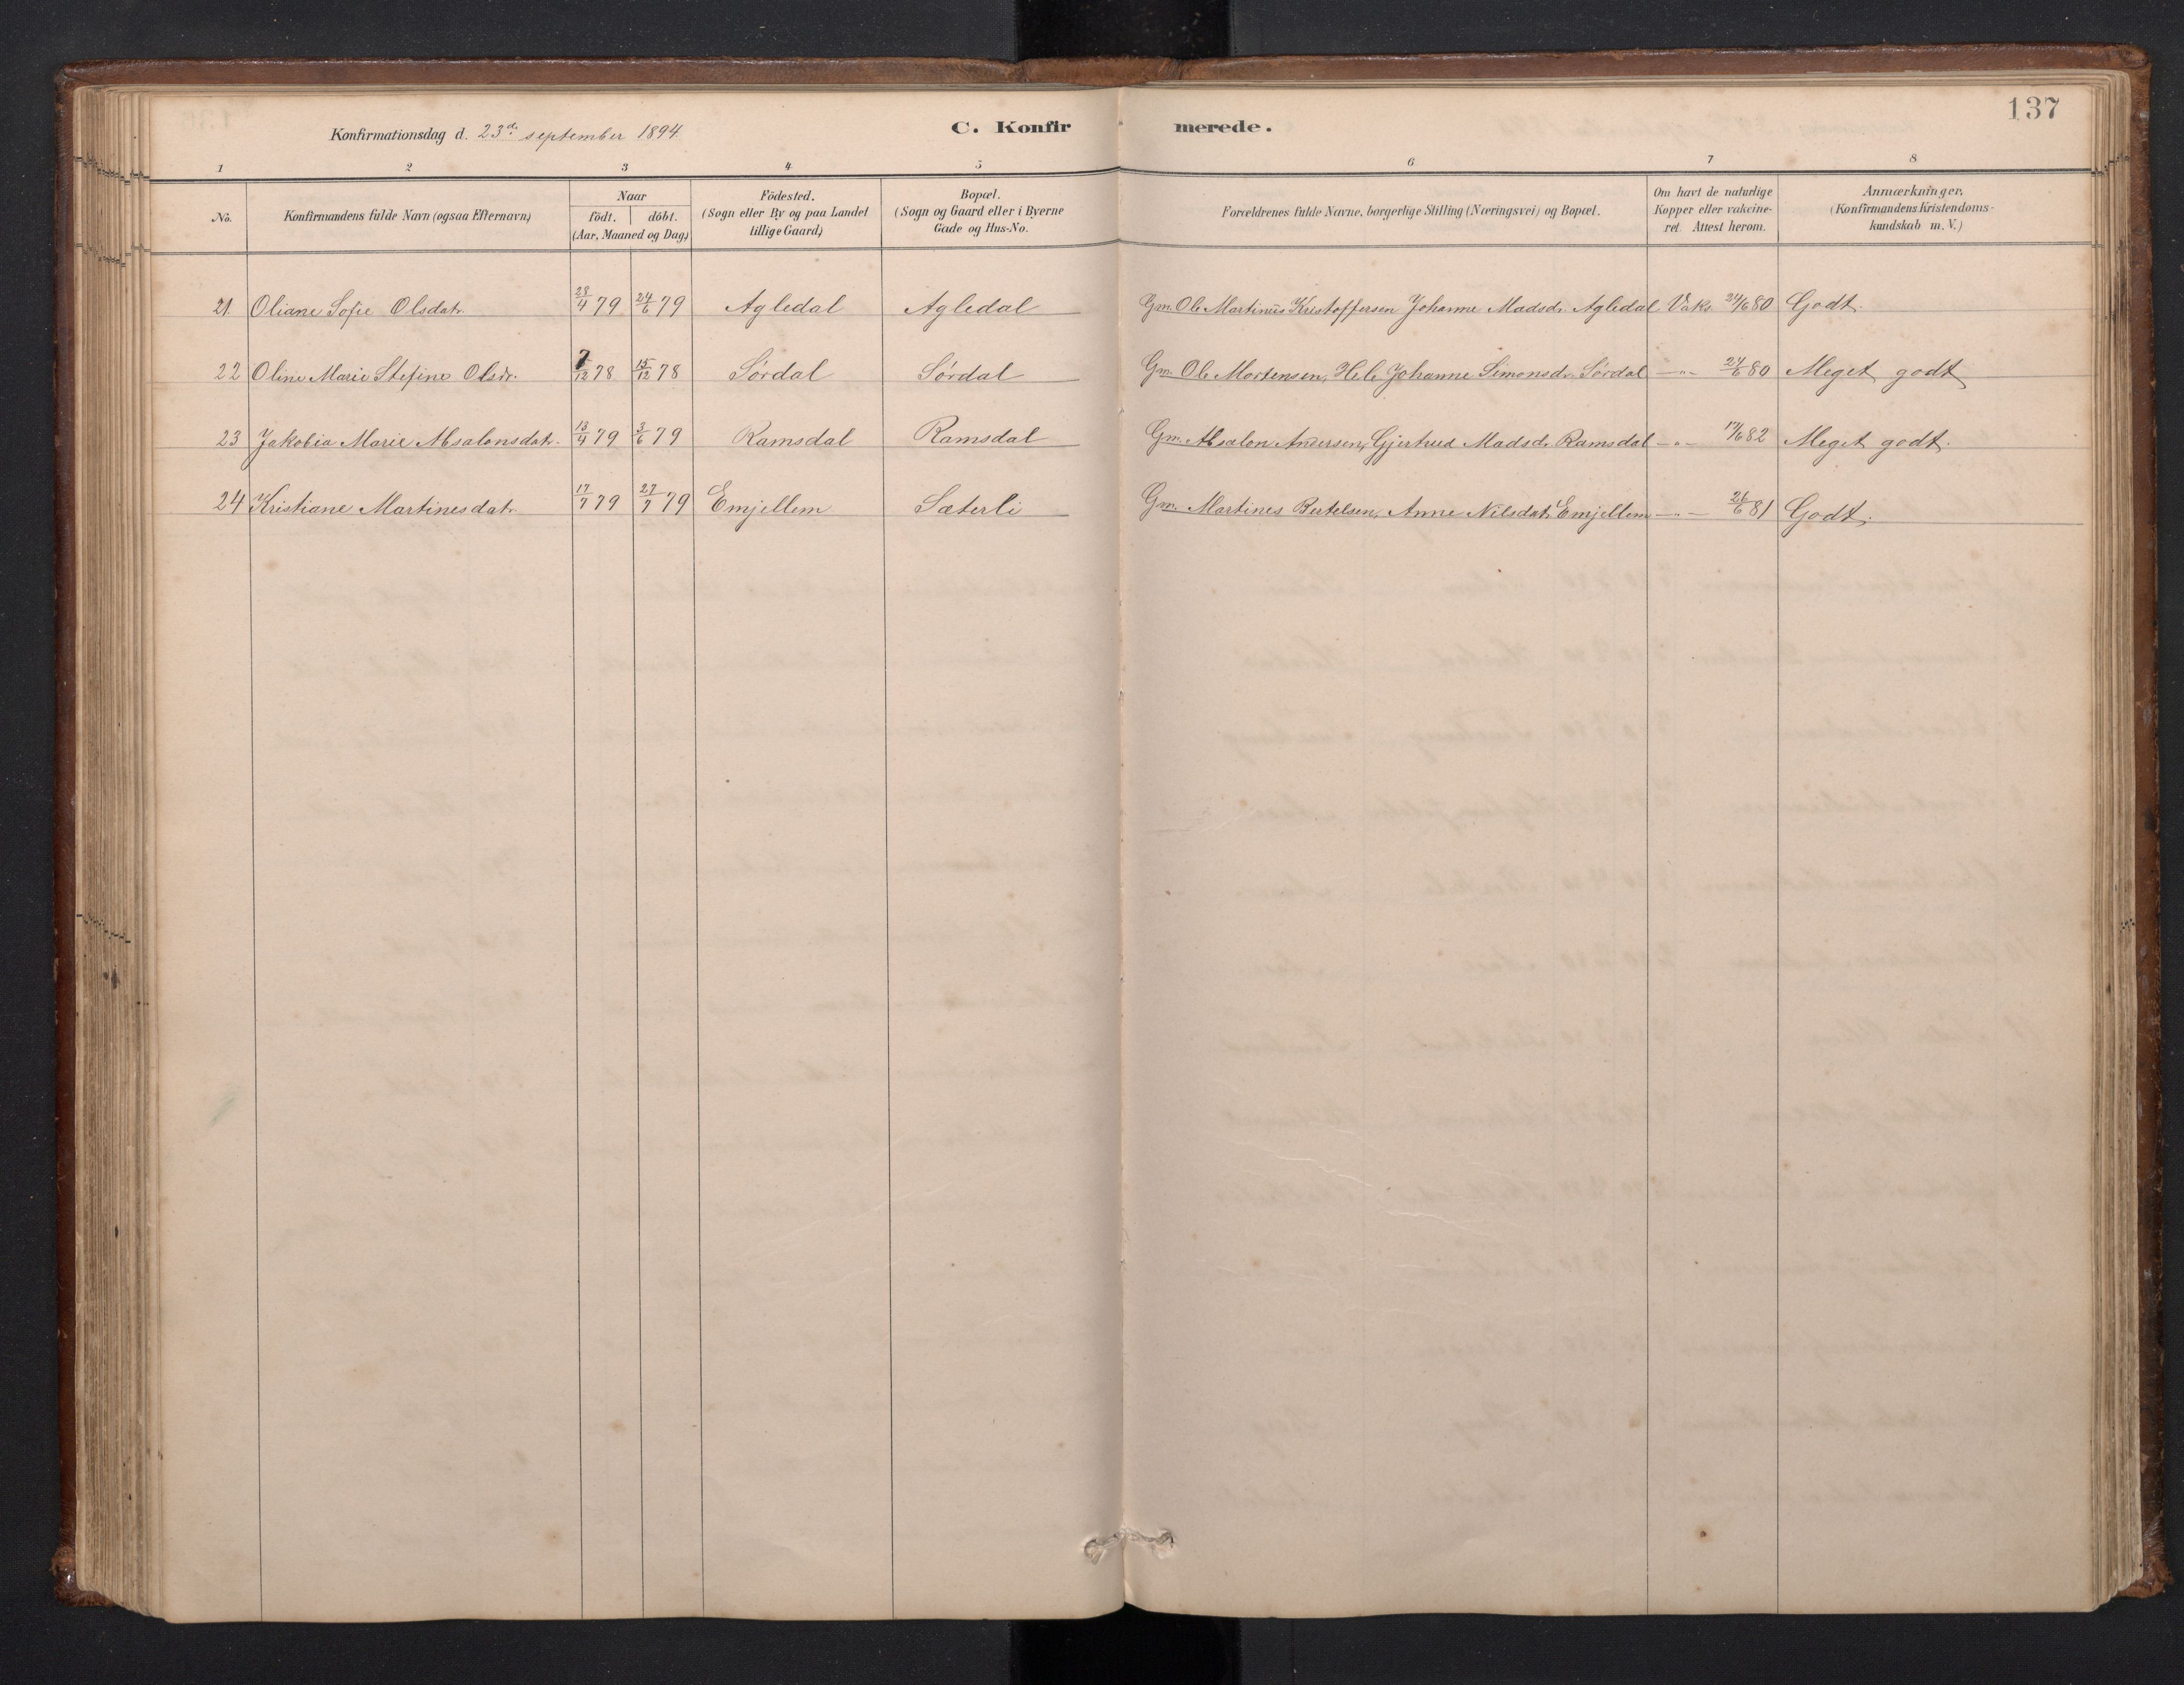 137
Konfirmationsdag d. 23d: september 1894. C. Konfirmerede.
1 2 3 4 5 6 7 8
No. Konfirmandens fulde Navn (ogsaa Efternavn) Naar födt. döbt. (Aar, Maaned og Dag) Födested. (Sogn eller By og paa Landet tillige Gaard) Bopæl. (Sogn og Gaard eller i Byerne Gade og Hus-No. Forældrenes fulde Navne, borgerlige Stilling (Næringsvei) og Bopæl. Om havt de naturlige Kopper eller vakcineret. Attest herom. Anmærkninger. (Konfirmandens Kristendomskundskab m. V.)
21. Oliane Sofie Olsdatr. 28/4 79 24/6 79 Agledal Agledal Gm. Ole Martinus Kristoffersen Johanne Madsdr. Agledal Vaks. 24/6 80 Godt.
22 Oline Marie Stefine Olsdr. 7/12 78 15/12 78 Sørdal Sørdal Gm. Ole Mortensen, Hele Johanne Simonsdr. Sørdal —„— 24/6 80 Meget godt
23 Jakobia Marie Absalonsdatr. 13/4 79 3/6 79 Ramsdal Ramsdal Gm. Absalon Andersen, Gjertrud Madsdr. Ramsdal —„— 17/6 82 Meget godt.
24 Kristiane Martinesdatr 17/7 79 27/7 79 Emjellem Sæterli Gm. Martines Bertelsen, Anne Nilsdatr. Emjellem —„— 26/6 81 Godt.